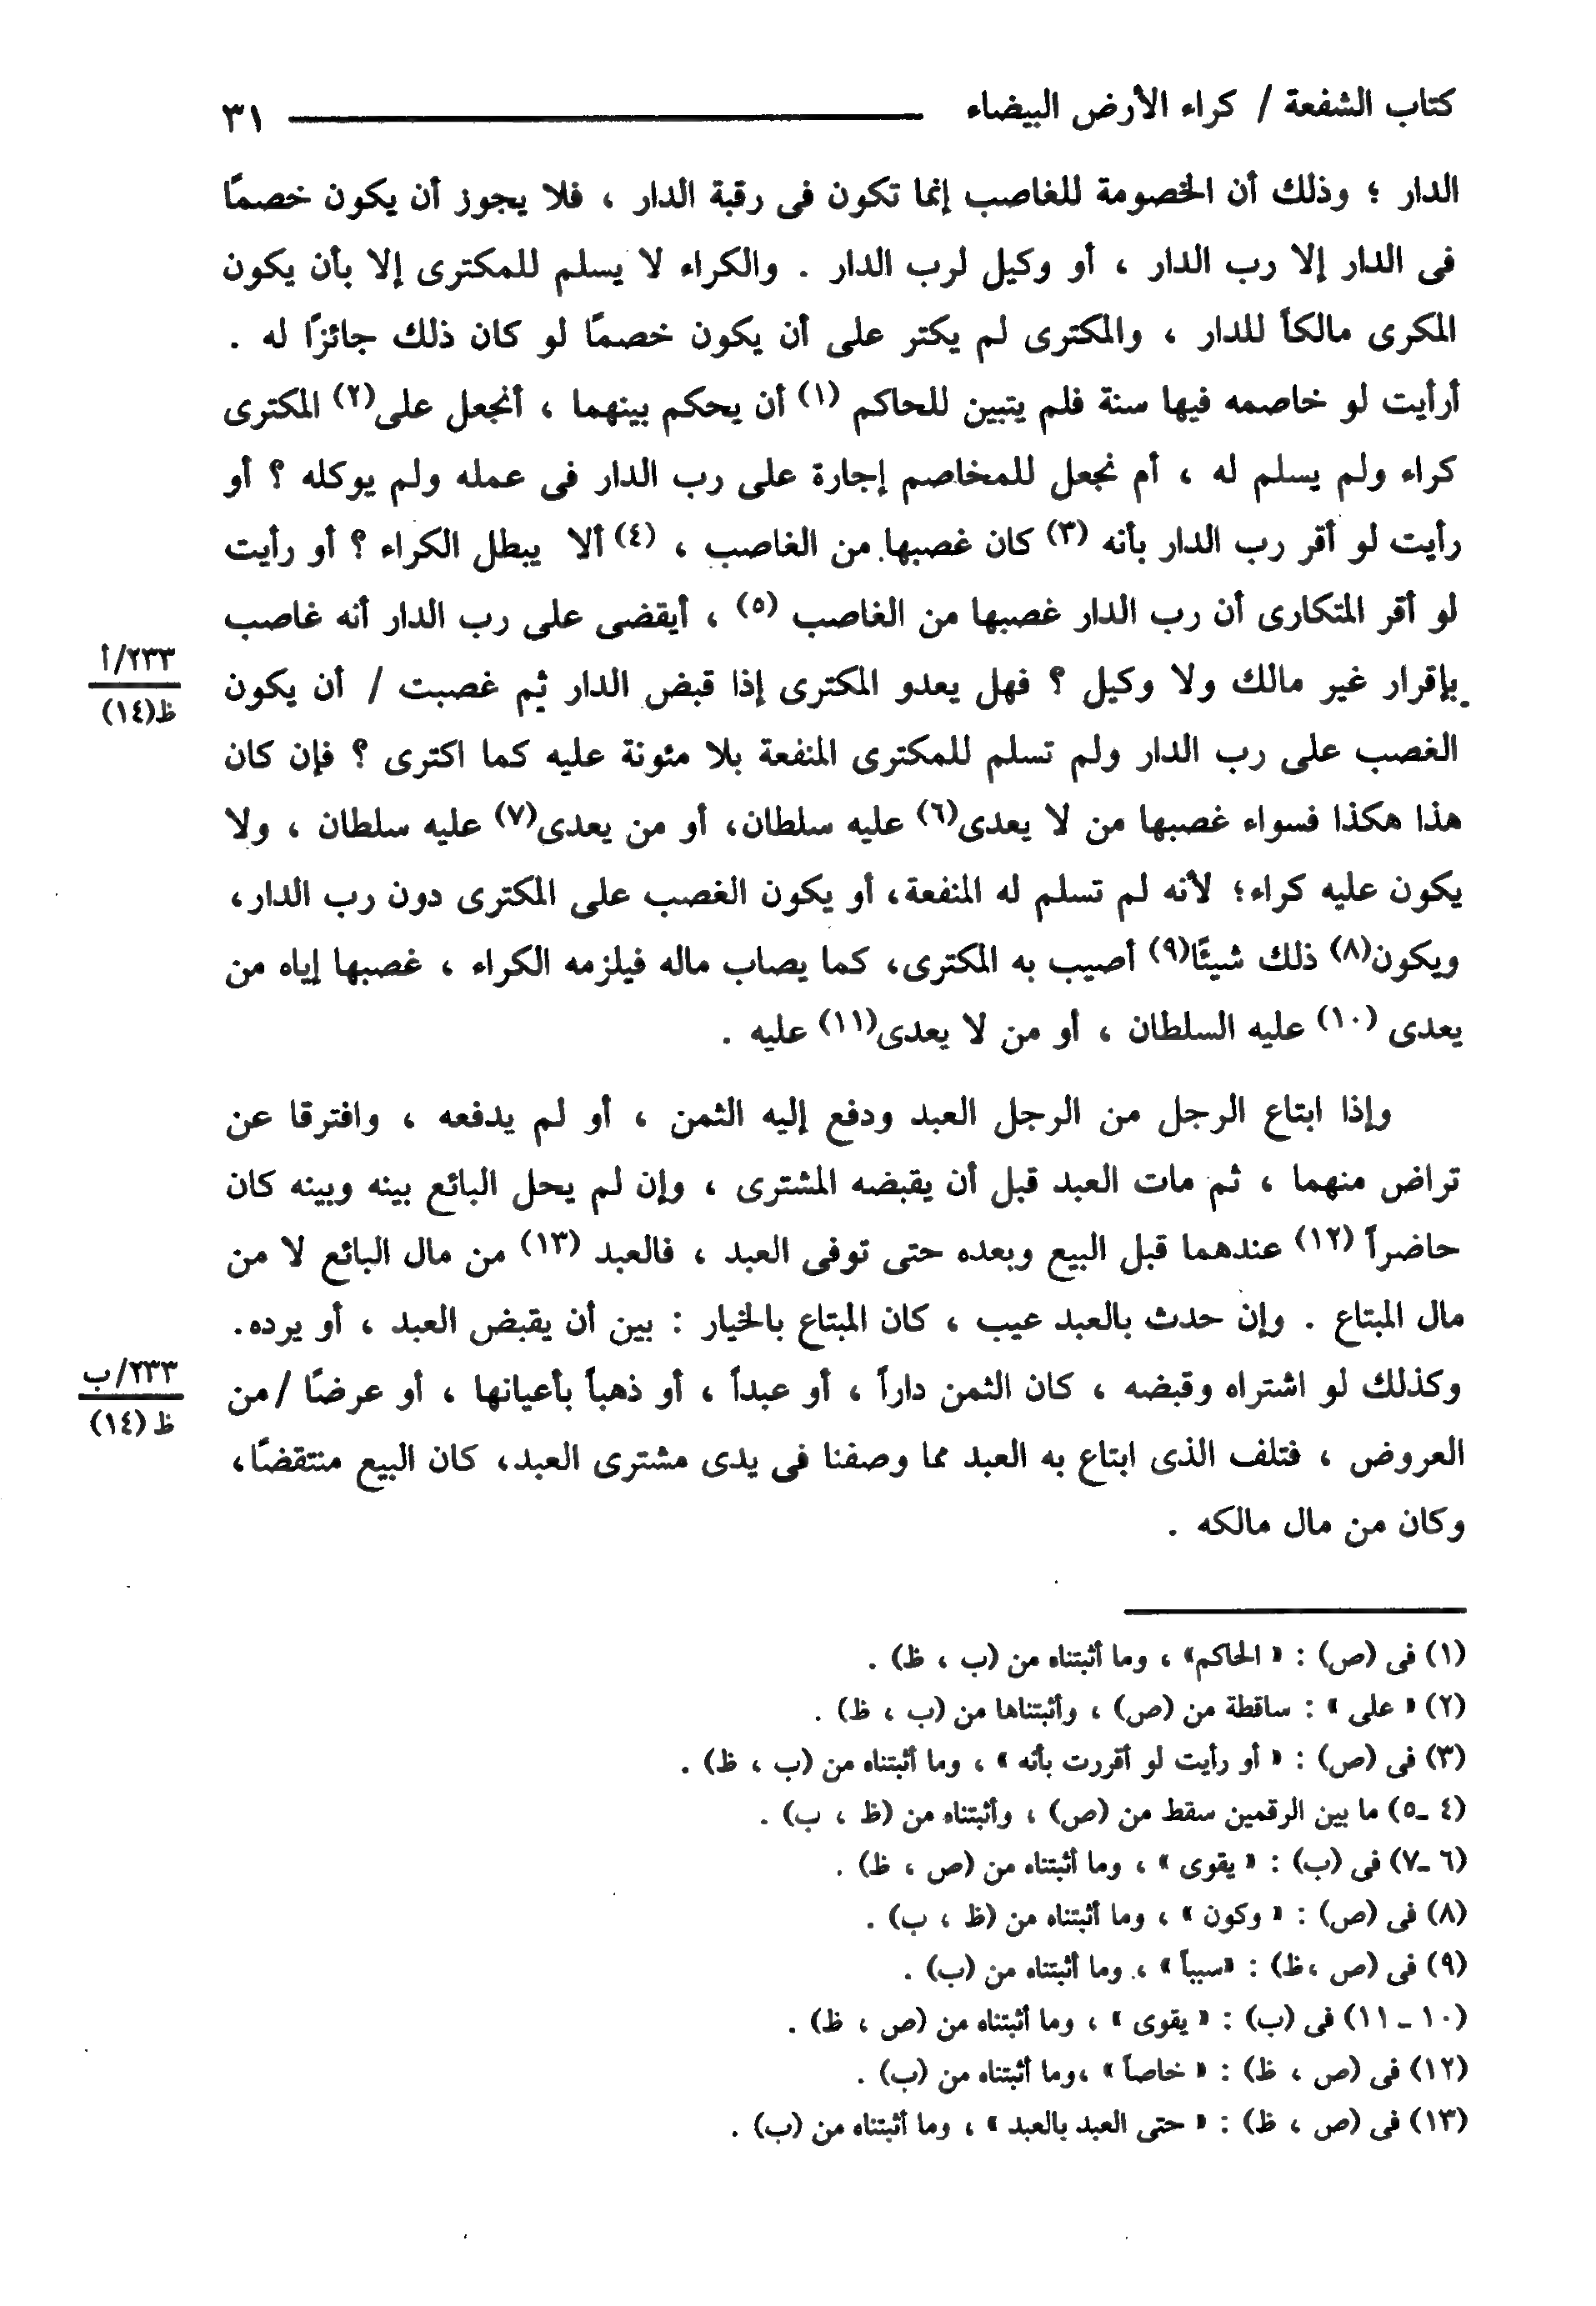 كتاب الشفعة / كراء الأرض البيضاء ٣١
الدار ؛ وذلك أن الخصومة للغاصب إنما تكون فى رقبة الدار ، فلا يجوز أن يكون خصمًا
فى الدار إلا رب الدار ، أو وكيل لرب الدار . والكراء لا يسلم للمكترى إلا بأن يكون
المكرى مالكاً للدار ، والمكترى لم يكتر على أن يكون خصمًا لو كان ذلك جائزًا له .
أرأيت لو خاصمه فيها سنة فلم يتبين للحاكم (١) أن يحكم بينهما ، أنجعل على(٢) المكترى
كراء ولم يسلم له ، أم نجعل للمخاصم إجارة على رب الدار فى عمله ولم يوكله ؟ أو
رأيت لو أقر رب الدار بأنه (٣) كان غصبها من الغاصب ، (٤) ألا يبطل الكراء ؟ أو رأيت
لو أقر المتكارى أن رب الدار غصبها من الغاصب (٥) ، أيقضى على رب الدار أنه غاصب
بإقرار غير مالك ولا وكيل ؟ فهل يعدو المكترى إذا قبض الدار ثم غصبت / أن يكون
٢٣٣/أ
ظ(١٤)
الغصب على رب الدار ولم تسلم للمكترى المنفعة بلا مئونة عليه كما اكترى ؟ فإن كان
هذا هكذا فسواء غصبها من لا يعدى(٦) عليه سلطان، أو من يعدى(٧) عليه سلطان ، ولا
يكون عليه كراء؛ لأنه لم تسلم له المنفعة، أو يكون الغصب على المكترى دون رب الدار،
ويكون(٨) ذلك شيئًا(٩) أصيب به المكترى، كما يصاب ماله فيلزمه الكراء ، غصبها إياه من
يعدى (١٠) عليه السلطان ، أو من لا يعدى(١١) عليه .
وإذا ابتاع الرجل من الرجل العبد ودفع إليه الثمن ، أو لم يدفعه ، وافترقا عن
تراض منهما ، ثم مات العبد قبل أن يقبضه المشترى ، وإن لم يحل البائع بينه وبينه كان
حاضراً (١٢) عندهما قبل البيع وبعده حتى توفى العبد ، فالعبد (١٣) من مال البائع لا من
مال المبتاع . وإن حدث بالعبد عيب ، كان المبتاع بالخيار : بين أن يقبض العبد ، أو يرده.
وكذلك لو اشتراه وقبضه ، كان الثمن داراً ، أو عبداً ، أو ذهباً بأعيانها ، أو عرضًا /من
٢٣٣/ب
ظ (١٤)
العروض ، فتلف الذى ابتاع به العبد مما وصفنا فى يدى مشترى العبد، كان البيع منتقضًا،
وكان من مال مالكه .
(١) فى (ص) : « الحاكم» ، وما أثبتناه من (ب ، ظ) .
(٢) « على » : ساقطة من (ص) ، وأثبتناها من (ب ، ظ) .
(٣) فى (ص) : « أو رأيت لو أقررت بأنه » ، وما أثبتناه من (ب ، ظ) .
(٤ ـ٥) ما بين الرقمين سقط من (ص) ، وأثبتناه من (ظ ، ب) .
(٦ ـ٧) فى (ب) : « يقوى » ، وما أثبتناه من (ص ، ظ) .
(٨) فى (ص) : « وكون » ، وما أثبتناه من (ظ ، ب) .
(٩) فى (ص ،ظ) : «سبباً » ، وما أثبتناه من (ب) .
(١٠ ـ ١١) فى (ب) : « يقوى » ، وما أثبتناه من (ص ، ظ) .
(١٢) فى (ص ، ظ) : « خاصاً » ،وما أثبتناه من (ب) .
(١٣) فى (ص ، ظ) : « حتى العبد بالعبد » ، وما أثبتناه من (ب) .